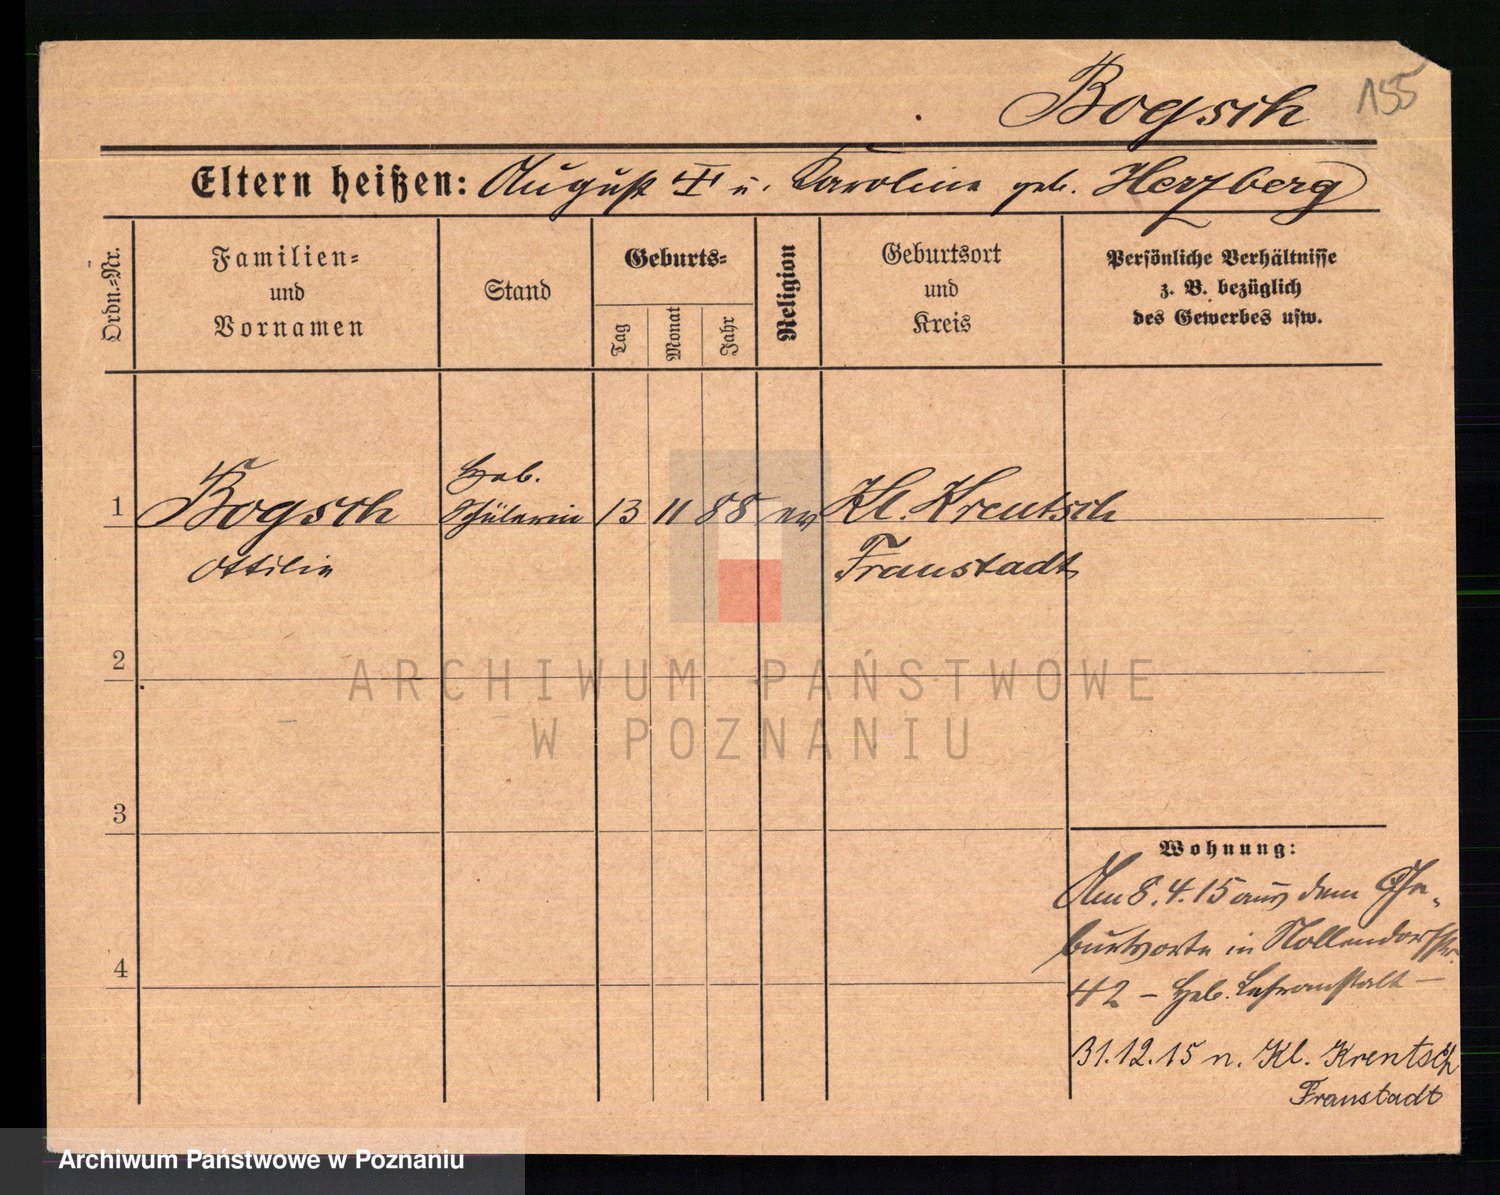 Bogsch 155
Eltern heißen: August † u. Karoline geb. Herzberg
Ordn.=Nr.
Familien=
und
Vornamen
Stand
Geburts=
Tag
Monat
Jahr
Religion
Geburtsort
und
Kreis
Persönliche Verhältnisse
z. B. bezüglich
des Gewerbes usw.
Heb.
1 Bogsch Schülerin 13 11 88 ev Kl. Krentsch
Ottilie Fraustadt
2
ARCHIWUM PAŃSTWOWE
W POZNANIU
3
Wohnung:
Am 8.4.15 aus dem Ge-
burtsorte in Nollendorfstr.
4
42 – Heb. Lehranstalt –
31.12.15 n. Kl. Krentsch
Fraustadt
Archiwum Państwowe w Poznaniu